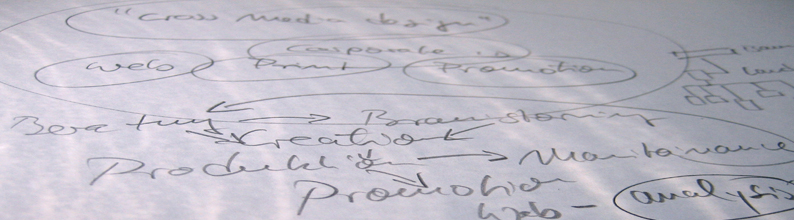 "Cross media design"
Corporate
Web Print Promotion
Beratung Brainstorming
Creation
Produktion Maintainance
Promotion
Web - analysis